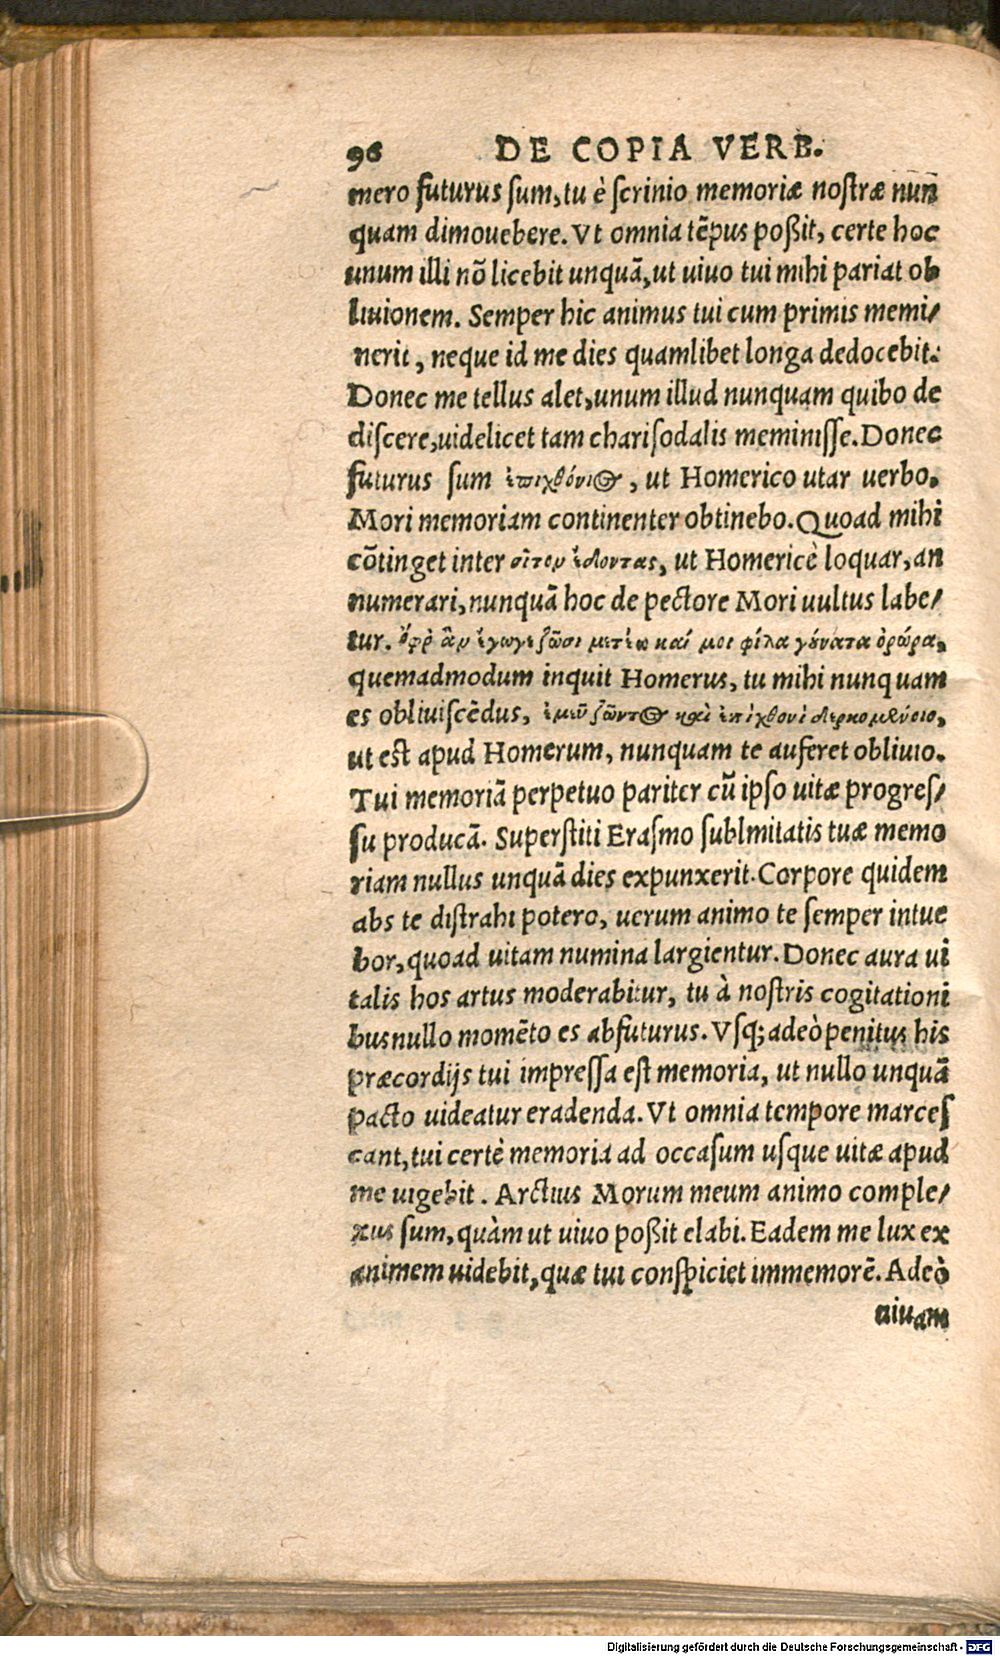 96 DE COPIA VERB.
mero futurus ſum, tu è ſcrinio memoriæ noſtræ nun
quam dimouebere. Vt omnia tẽpus poßit, certe hoc
unum illi nõ licebit unquã, ut uiuo tui mihi pariat ob
liuionem. Semper hic animus tui cum primis memi/
nerit, neque id me dies quamlibet longa dedocebit.
Donec me tellus alet, unum illud nunquam quibo de
diſcere, uidelicet tam chari ſodalis meminiſſe. Donec
futurus ſum ἐπιχθόνιος, ut Homerico utar uerbo.
Mori memoriam continenter obtinebo. Quoad mihi
cõtinget inter σῖτον ἔδοντας, ut Homericè loquar, an
numerari, nunquã hoc de pectore Mori uultus labe/
tur. ὄφρ ἂν ἔγωγε ζῶσι μετέω καί μοι φίλα γόνατα ὀρώρα,
quemadmodum inquit Homerus, tu mihi nunquam
es obliuiſcẽdus, ἐμεῦ ζῶντος καὶ ἐπὶ χθονὶ δερκομένοιο,
ut eſt apud Homerum, nunquam te auferet obliuio.
Tui memoriã perpetuo pariter cũ ipſo uitæ progreſ/
ſu producã. Superſtiti Eraſmo ſublmitatis tuæ memo
riam nullus unquã dies expunxerit. Corpore quidem
abs te diſtrahi potero, uerum animo te ſemper intue
bor, quoad uitam numina largientur. Donec aura ui
talis hos artus moderabitur, tu à noſtris cogitationi
bus nullo momẽto es abfuturus. Vſq; adeò penitus his
præcordijs tui impreſſa eſt memoria, ut nullo unquã
pacto uideatur eradenda. Vt omnia tempore marceſ
cant, tui certè memoria ad occaſum uſque uitæ apud
me uigebit. Arctius Morum meum animo comple/
xus ſum, quàm ut uiuo poßit elabi. Eadem me lux ex
animem uidebit, quæ tui conſpiciet immemorẽ. Adeò
uiuam
Digitalisierung gefördert durch die Deutsche Forschungsgemeinschaft - DFG